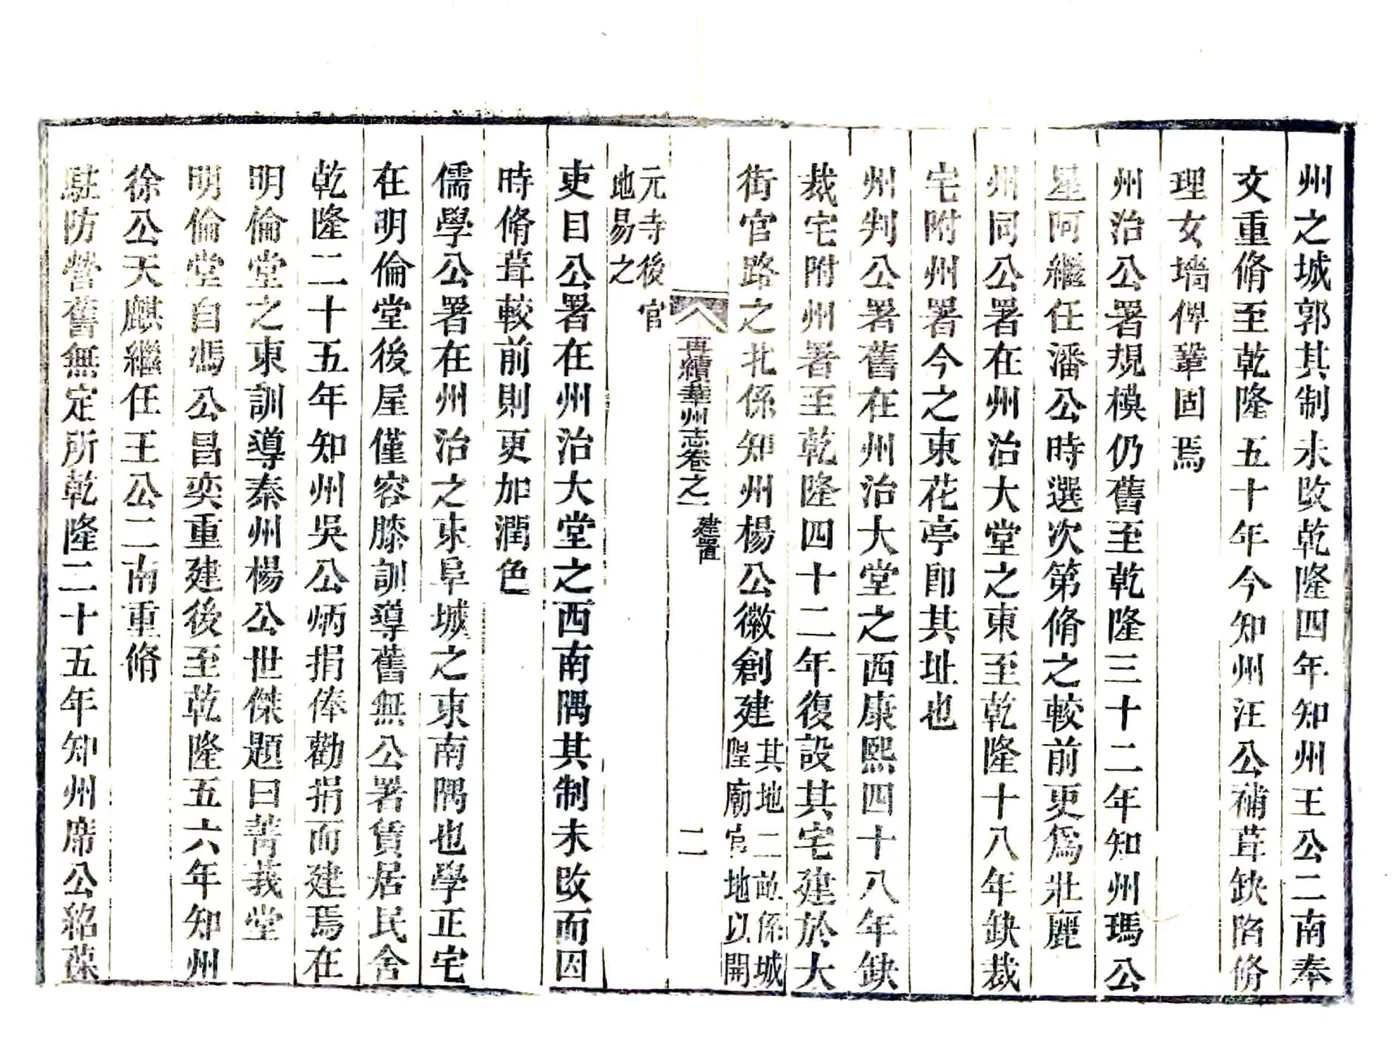 州之城郭其制未改乾隆四年知州王公二南奉
文重脩至乾隆五十年今知州汪公補葺缺陷脩
理女墻俾鞏固焉
州治公署規模仍舊至乾隆三十二年知州瑪公
星阿繼任潘公時選次第脩之較前更爲壯麗
州同公署在州治大堂之東至乾隆十八年缺裁
宅附州署今之東花亭卽其址也
州判公署舊在州治大堂之西康熙四十八年缺
裁宅附州署至乾隆四十二年復設其宅建於大
街官路之北係知州楊公徽創建
其地二畝係城
隍廟官地以開
再續華州志卷之一
建置
二
元寺後官
地易之
吏目公署在州治大堂之西南隅其制未改而因
時脩葺較前則更加潤色
儒學公署在州治之東阜城之東南隅也學正宅
在明倫堂後屋僅容膝訓導舊無公署賃居民舍
乾隆二十五年知州吳公炳捐俸勸捐而建焉在
明倫堂之東訓導秦州楊公世傑題曰菁莪堂
明倫堂自馮公昌奕重建後至乾隆五六年知州
徐公天麒繼任王公二南重脩
駐防營舊無定所乾隆二十五年知州席公紹葆